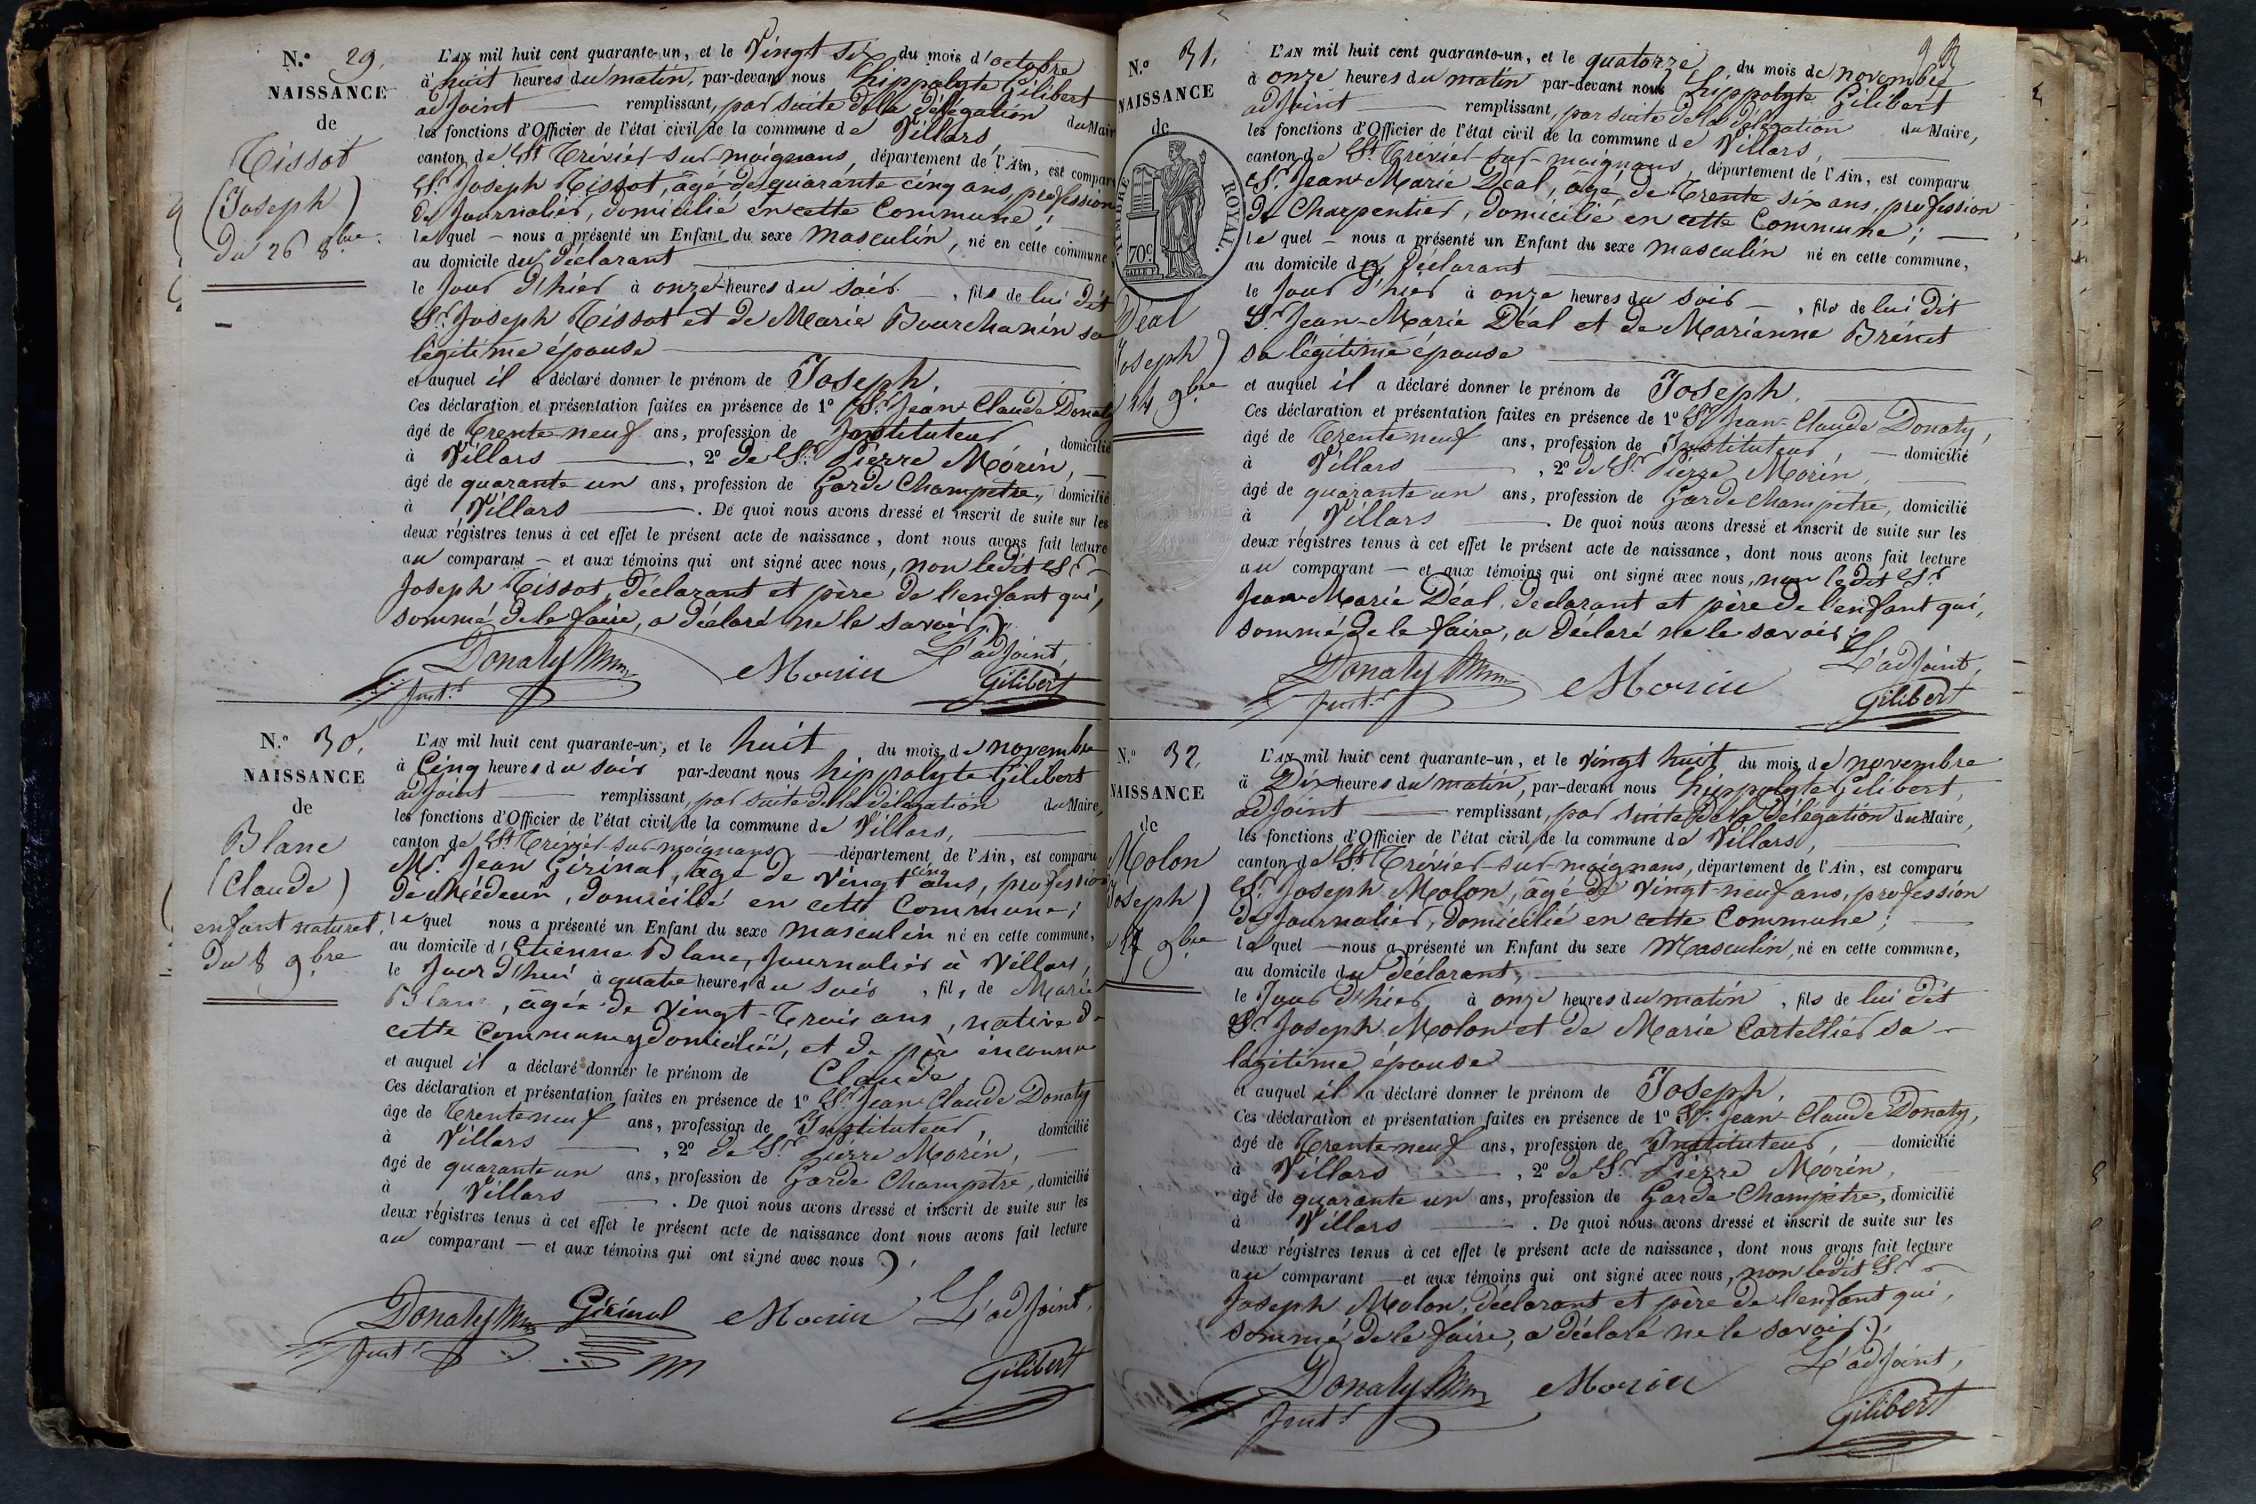 N.° 29.
NAISSANCE
de
Tissot
(Joseph)
du 26 8.bre
L'AN mil huit cent quarante-un, et le Vingt six du mois d'octobre
à huit heures du matin, par-devant nous hippolyte Gilibert
adjoint remplissant, par suite de la délégation du Mair
les fonctions d'Officier de l'état civil de la commune de Villars
canton de St Trévier-sur-moignans, département de l'Ain, est compar
Sr. Joseph Tissot, âgé de quarante cinq ans, profession
de Journalier, domicilié en cette Commune;
lequel - nous a présenté un Enfant du sexe masculin, né en cette commune,
au domicile du déclarant
le Jour d'hier à onze heures du soir, fils de lui dit
Sr. Joseph Tissot et de Marie Bourchanin sa
légitime épouse
et auquel il a déclaré donner le prénom de Joseph.
Ces déclaration et présentation faites en présence de 1° Sr. Jean-Claude Donaty
âgé de Trente-neuf ans, profession de Instituteur domicilié
à Villars, 2° de Sr. Pierre Morin,
âgé de quarante un ans, profession de Garde Champetre, domicilié
à Villars. De quoi nous avons dressé et inscrit de suite sur les
deux régistres tenus à cet effet le présent acte de naissance, dont nous avons fait lecture
au comparant - et aux témoins qui ont signé avec nous, non ledit Sr
Joseph Tissot, déclarant et père de l'enfant qui,
sommé de le faire, a déclaré ne le savoir.
L'adjoint,
Donaty Morin Gilibert
Inst.r
N.° 30.
NAISSANCE
de
Blanc
(Claude)
enfant naturel.
du 8 9.bre
L'AN mil huit cent quarante-un, et le huit du mois de novembre
à Cinq heures du soir par-devant nous hippolyte Gilibert
adjoint remplissant, par suite de la délégation du Maire,
les fonctions d'Officier de l'état civil de la commune de Villars,
canton de St Trévier-sur-moignans département de l'Ain, est comparu
Mr. Jean Girinal, âgé de vingt cinq ans, profession
de Médecin, domicilié en cette Commune;
lequel nous a présenté un Enfant du sexe masculin né en cette commune,
au domicile d'Etienne Blanc, Journalier à Villars,
le Jour d'hui à quatre heures du soir, fils de Marie
Blanc, âgée de Vingt-Trois ans, native de
cette Commune y domiciliée, et de père inconnu
et auquel il a déclaré donner le prénom de Claude.
Ces déclaration et présentation faites en présence de 1° Sr. Jean-Claude Donaty
âgé de Trente neuf ans, profession de Instituteur, domicilié
à Villars, 2° de Sr. Pierre Morin,
âgé de quarante un ans, profession de Garde Champetre, domicilié
à Villars. De quoi nous avons dressé et inscrit de suite sur les
deux régistres tenus à cet effet le présent acte de naissance dont nous avons fait lecture
au comparant - et aux témoins qui ont signé avec nous.
Donaty Girinal Morin L'adjoint,
Inst.r Gilibert
93
N.° 31.
NAISSANCE
de
TIMBRE ROYAL.
70c
Déal
Joseph)
14 9.bre
L'AN mil huit cent quarante-un, et le quatorze du mois de novembre
à onze heures du matin par-devant nous hippolyte Gilibert
adjoint remplissant, par suite de la délégation du Maire,
les fonctions d'Officier de l'état civil de la commune de Villars,
canton de St Trévier-sur-moignans, département de l'Ain, est comparu
Sr. Jean-Marie Déal, âgé de Trente six ans, profession
de Charpentier, domicilié en cette Commune;
lequel - nous a présenté un Enfant du sexe masculin né en cette commune,
au domicile du déclarant
le Jour d'hier à onze heures du soir, fils de lui dit
Sr. Jean-Marie Déal et de Marianne Brénet
sa légitime épouse
et auquel il a déclaré donner le prénom de Joseph.
Ces déclaration et présentation faites en présence de 1° Sr Jean-Claude Donaty,
âgé de Trente neuf ans, profession de Instituteur, domicilié
à Villars, 2° de Sr. Pierre Morin,
âgé de quarante un ans, profession de Garde Champetre, domicilié
à Villars. De quoi nous avons dressé et inscrit de suite sur les
deux régistres tenus à cet effet le présent acte de naissance, dont nous avons fait lecture
au comparant - et aux témoins qui ont signé avec nous, non ledit Sr.
Jean-Marie Déal, déclarant et père de l'enfant qui,
sommé de le faire, a déclaré ne le savoir.
L'adjoint,
Donaty Morin Gilibert
Inst.r
N.° 32.
NAISSANCE
de
Molon
Joseph)
9.bre
L'AN mil huit cent quarante-un, et le vingt huit du mois de novembre
à Dix heures du matin, par-devant nous hippolyte Gilibert,
adjoint remplissant, par suite de la délégation du Maire,
les fonctions d'Officier de l'état civil de la commune de Villars,
canton de St Trévier-sur-moignans, département de l'Ain, est comparu
Sr. Joseph Molon, âgé de Vingt-neuf ans, profession
de Journalier, domicilié en cette Commune;
lequel - nous a présenté un Enfant du sexe Masculin, né en cette commune,
au domicile du déclarant,
le Jour d'hier à onze heures du matin, fils de lui dit
Sr. Joseph Molon et de Marie Cartellier sa
légitime épouse
et auquel il a déclaré donner le prénom de Joseph.
Ces déclaration et présentation faites en présence de 1° Sr. Jean-Claude Donaty,
âgé de Trente neuf ans, profession de Instituteur, domicilié
à Villars, 2° de Sr. Pierre Morin,
âgé de quarante un ans, profession de Garde Champetre, domicilié
à Villars. De quoi nous avons dressé et inscrit de suite sur les
deux régistres tenus à cet effet le présent acte de naissance, dont nous avons fait lecture
au comparant - et aux témoins qui ont signé avec nous, non ledit Sr
Joseph Molon, déclarant et père de l'enfant qui,
sommé de le faire, a déclaré ne le savoir.
L'adjoint,
Donaty Morin Gilibert
Inst.r